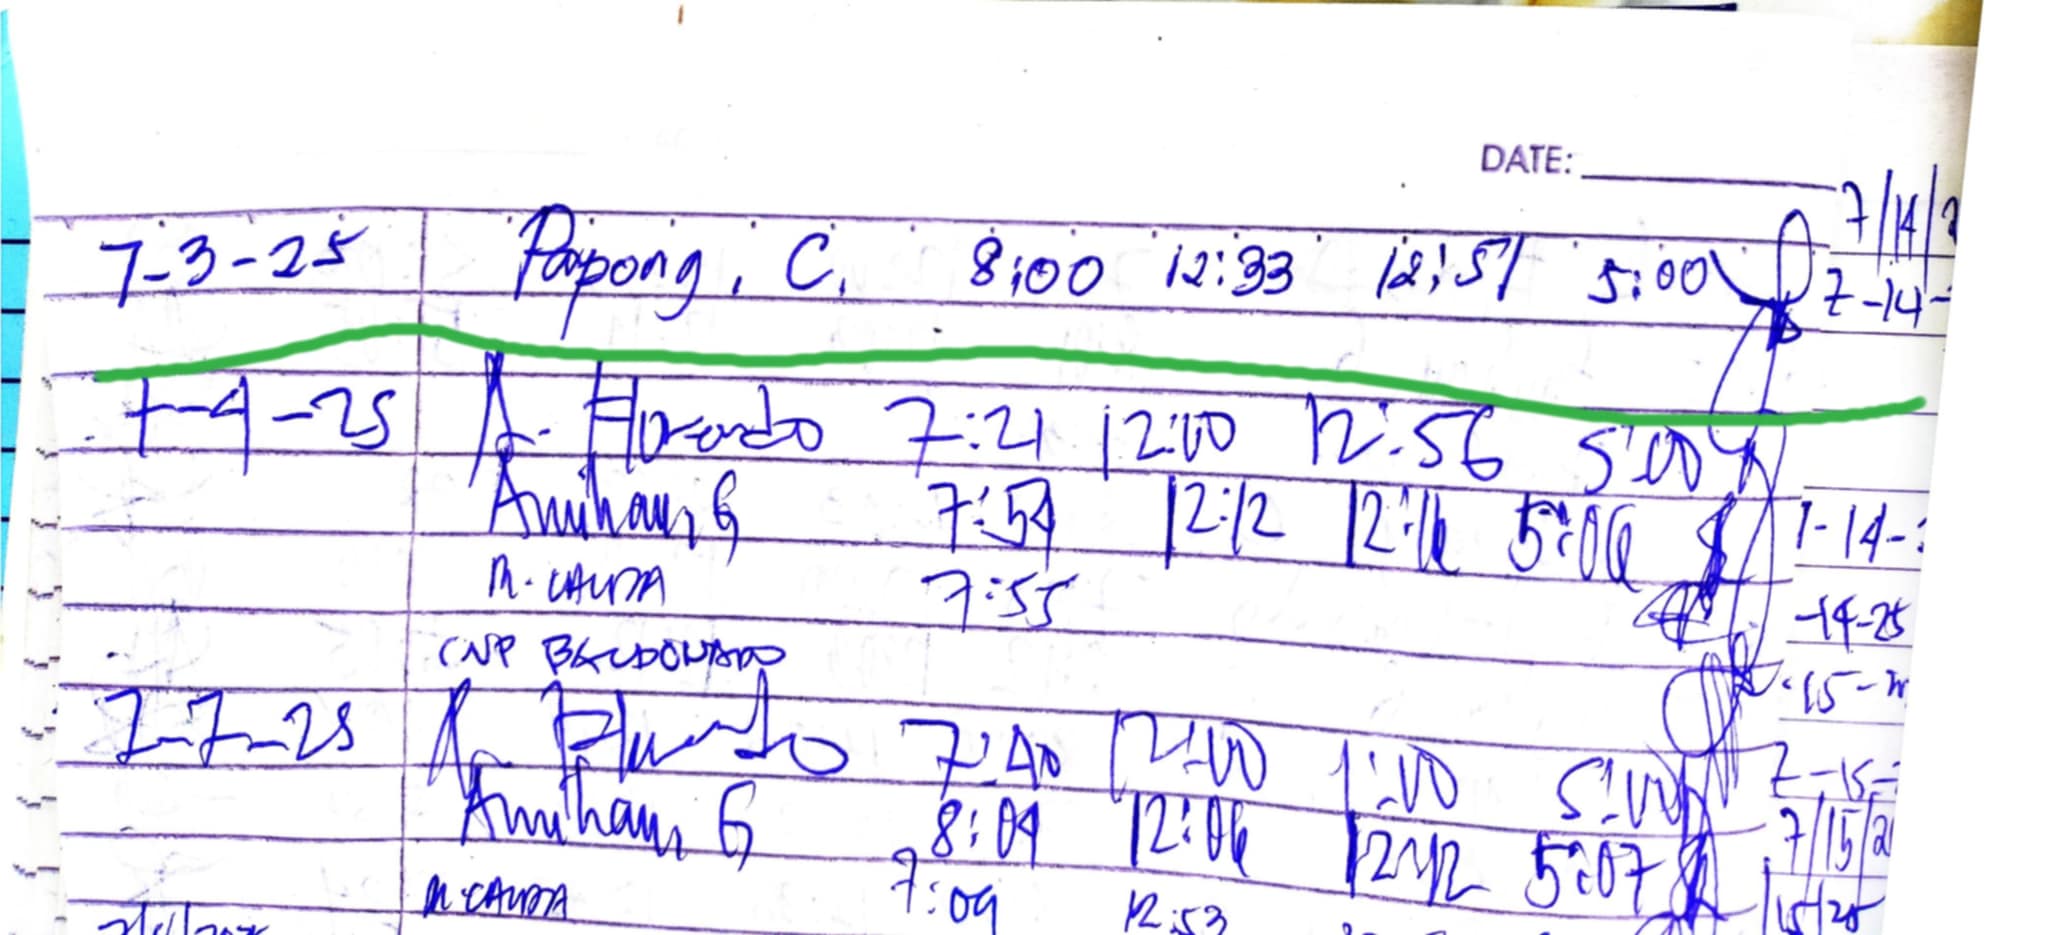 DATE:
7/14/2
7-3-25 Papong, C. 8:00 12:33 12:51 5:00
7-14-
7-4-25 A. Florendo 7:21 12:00 12:56 5:00
Amihan, G 7:54 12:12 12:16 5:06
7-14-
M. CAUDA 7:55
-14-25
CNP BALDONADO
-15-2
7-7-25 A. Florendo 7:40 12:00 1:00 5:00
7-15-
Amihan, G 8:09 12:06 12:12 5:07
7/15/2
M. CAUDA 7:09 12:53
/15/25